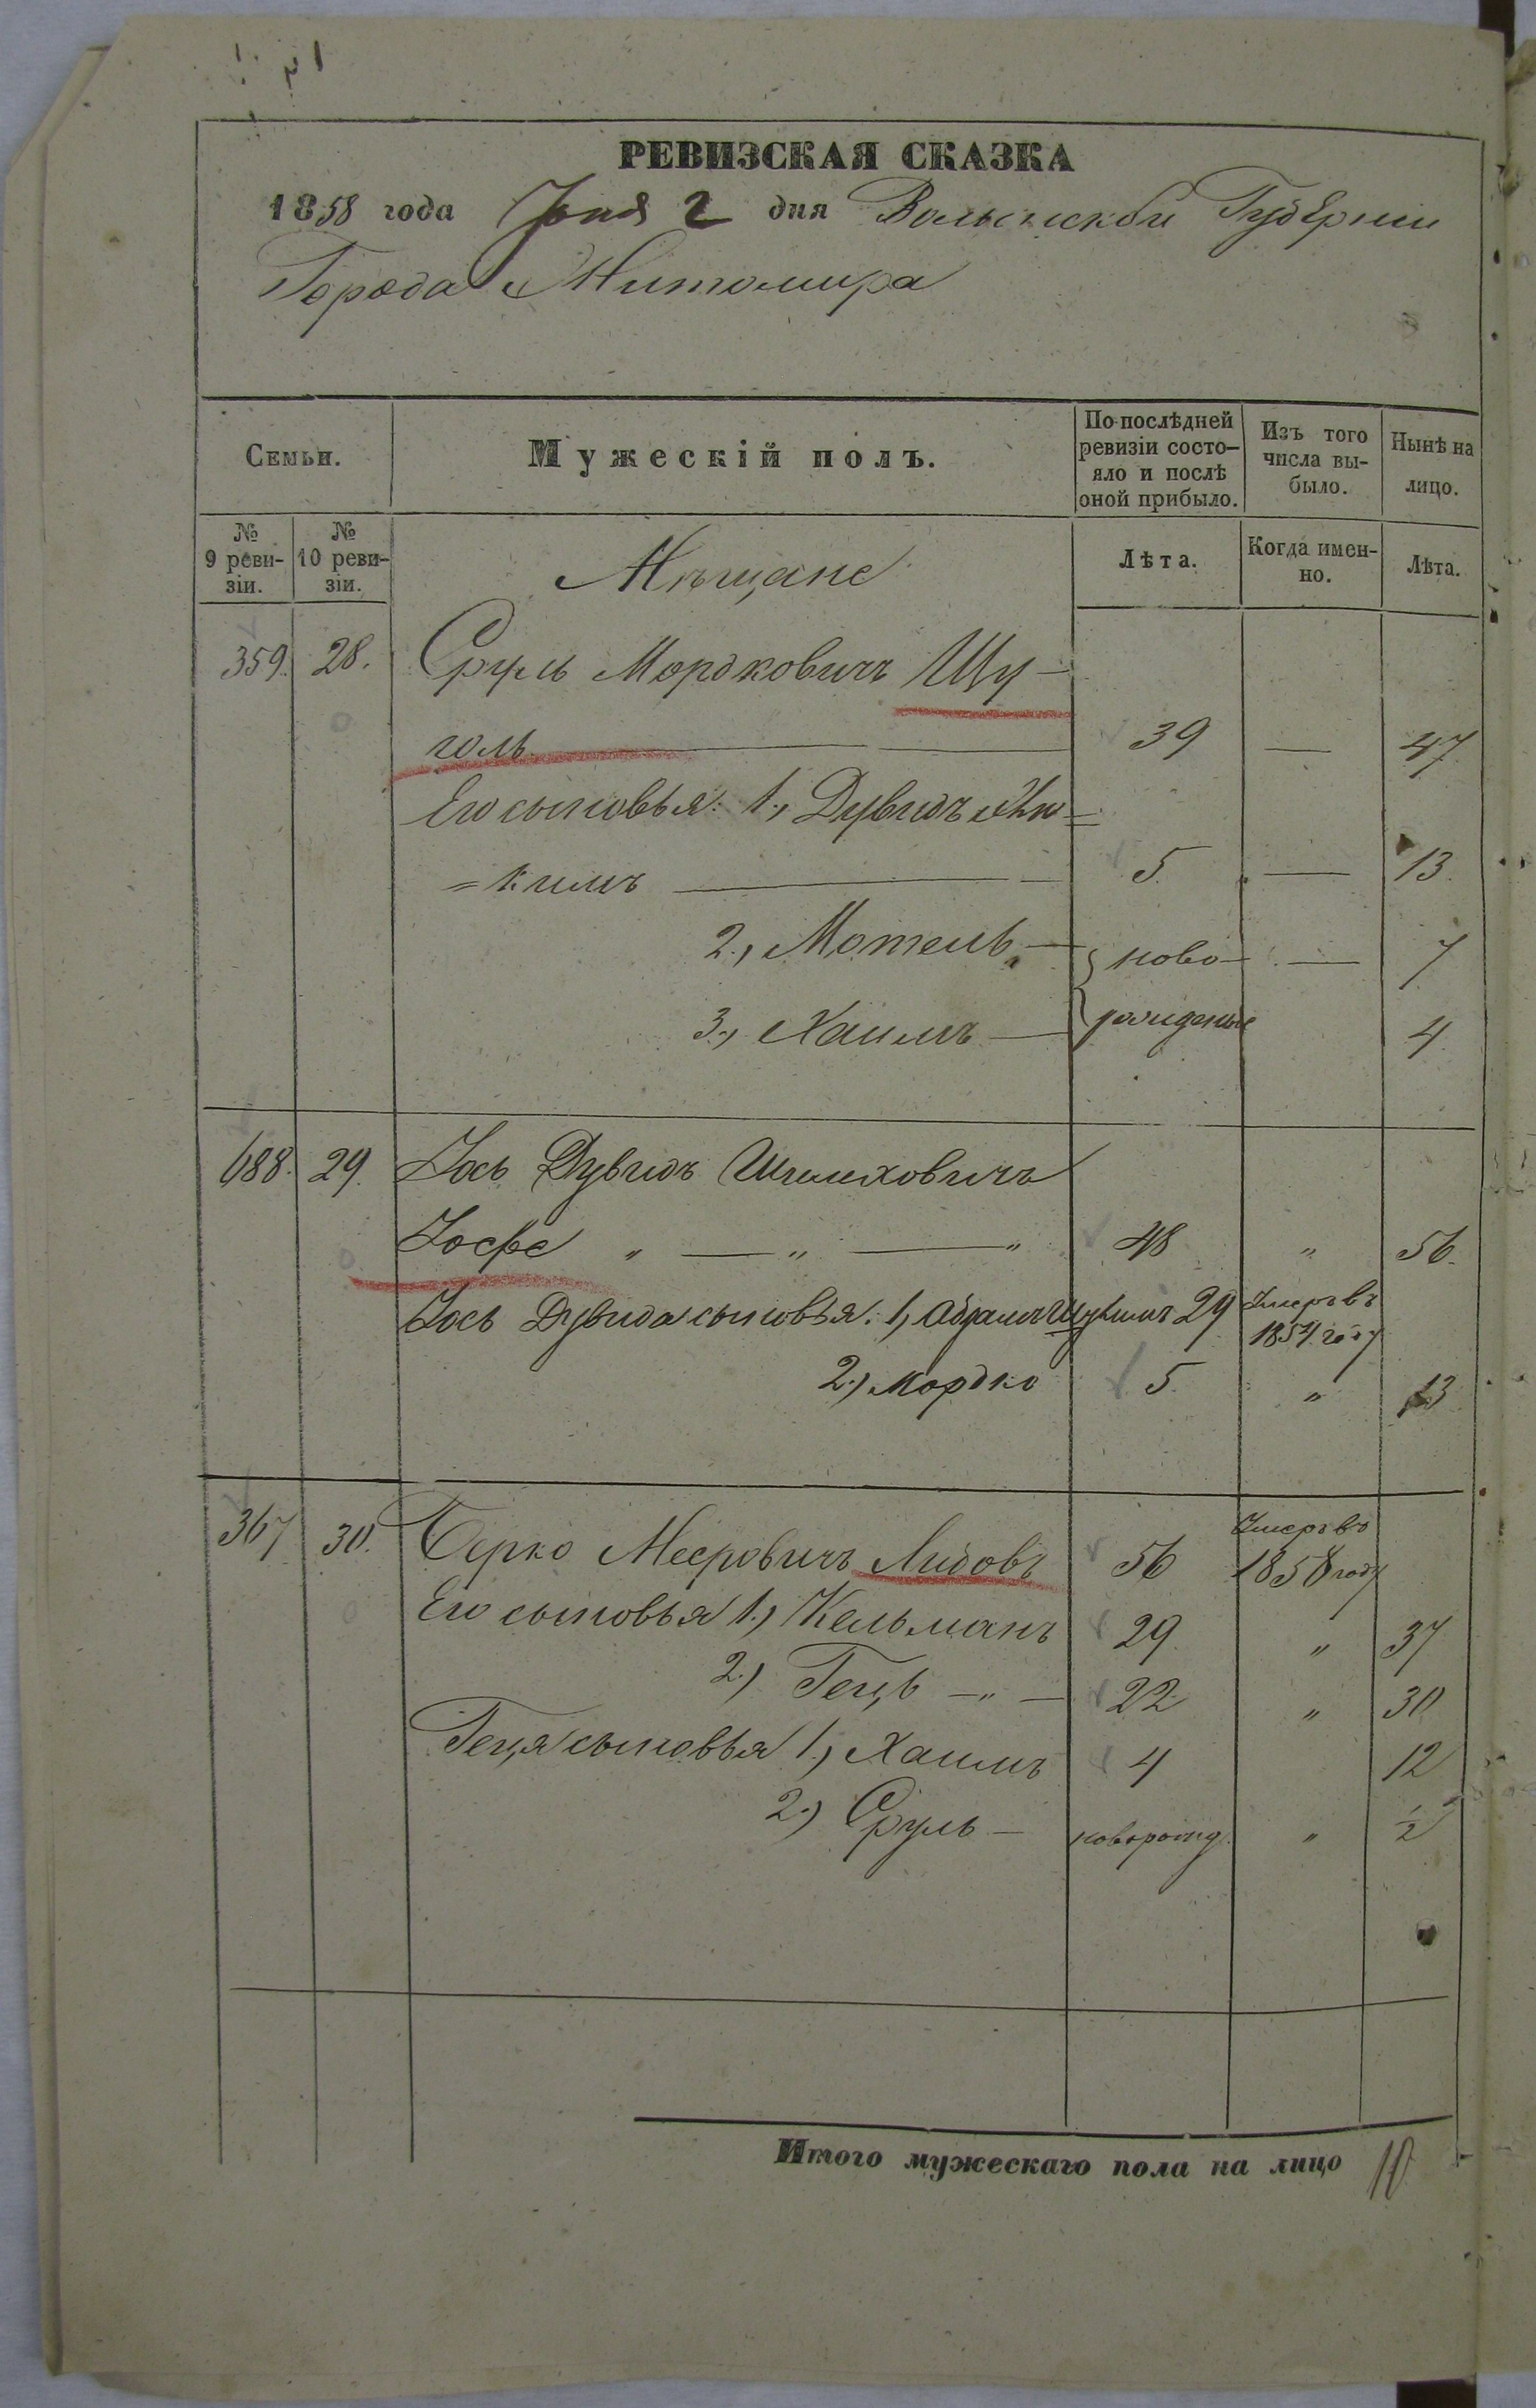 РЕВИЗСКАЯ СКАЗКА
1858 года Іюня 2 дня Волынской Губерніи
Города Житомира
Семьи.
Мужескій полъ.
По послѣдней ревизіи состо-
яло и послѣ оной прибыло.
Изъ того числа вы-
было.
Нынѣ на лицо.
№ 9 реви-
зіи.
№ 10 реви-
зіи.
Мѣщане
Лѣта.
Когда имен-
но.
Лѣта.
359. 28. Сруль Мордковичъ Щу-
голь 39 — 47
Его сыновья: 1., Дувидъ =
= кимъ 5. — 13.
2., Мотель — ново- — 7
3., Хаимъ — рожденые 4
688. 29. Іось Дувидъ Шмелховичъ
Іосфе „ — „ — „ 48 „ 56.
Іось Дувида сыновья: 1, Абрамъ 29 Умеръ въ
1854 году
2.) Мордко 5. „ 13
367 30. Берко Мееровичъ Лидовъ 56 Умеръ въ
1858 году
Его сыновья 1.) Кельманъ 29 „ 37
2.) Гець — „ — 22 „ 30
Геця сыновья 1., Хаимъ 4 12
2.) Сруль — новорожд. „ 1/2
Итого мужескаго пола на лицо 10